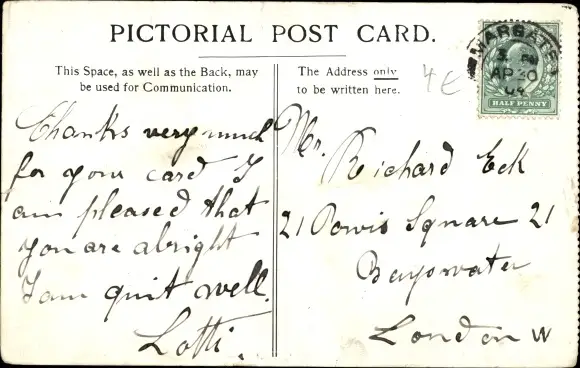 PICTORIAL POST CARD.
This Space, as well as the Back, may
be used for Communication.
The Address only
to be written here.
4€
MARGATE
AP 30
04
HALF PENNY
Thanks very much
for your card I
am pleased that
you are alright
I am quit well.
Lotti.
Mr. Richard Eck
21 Powis Square 21
Bayswater
London W